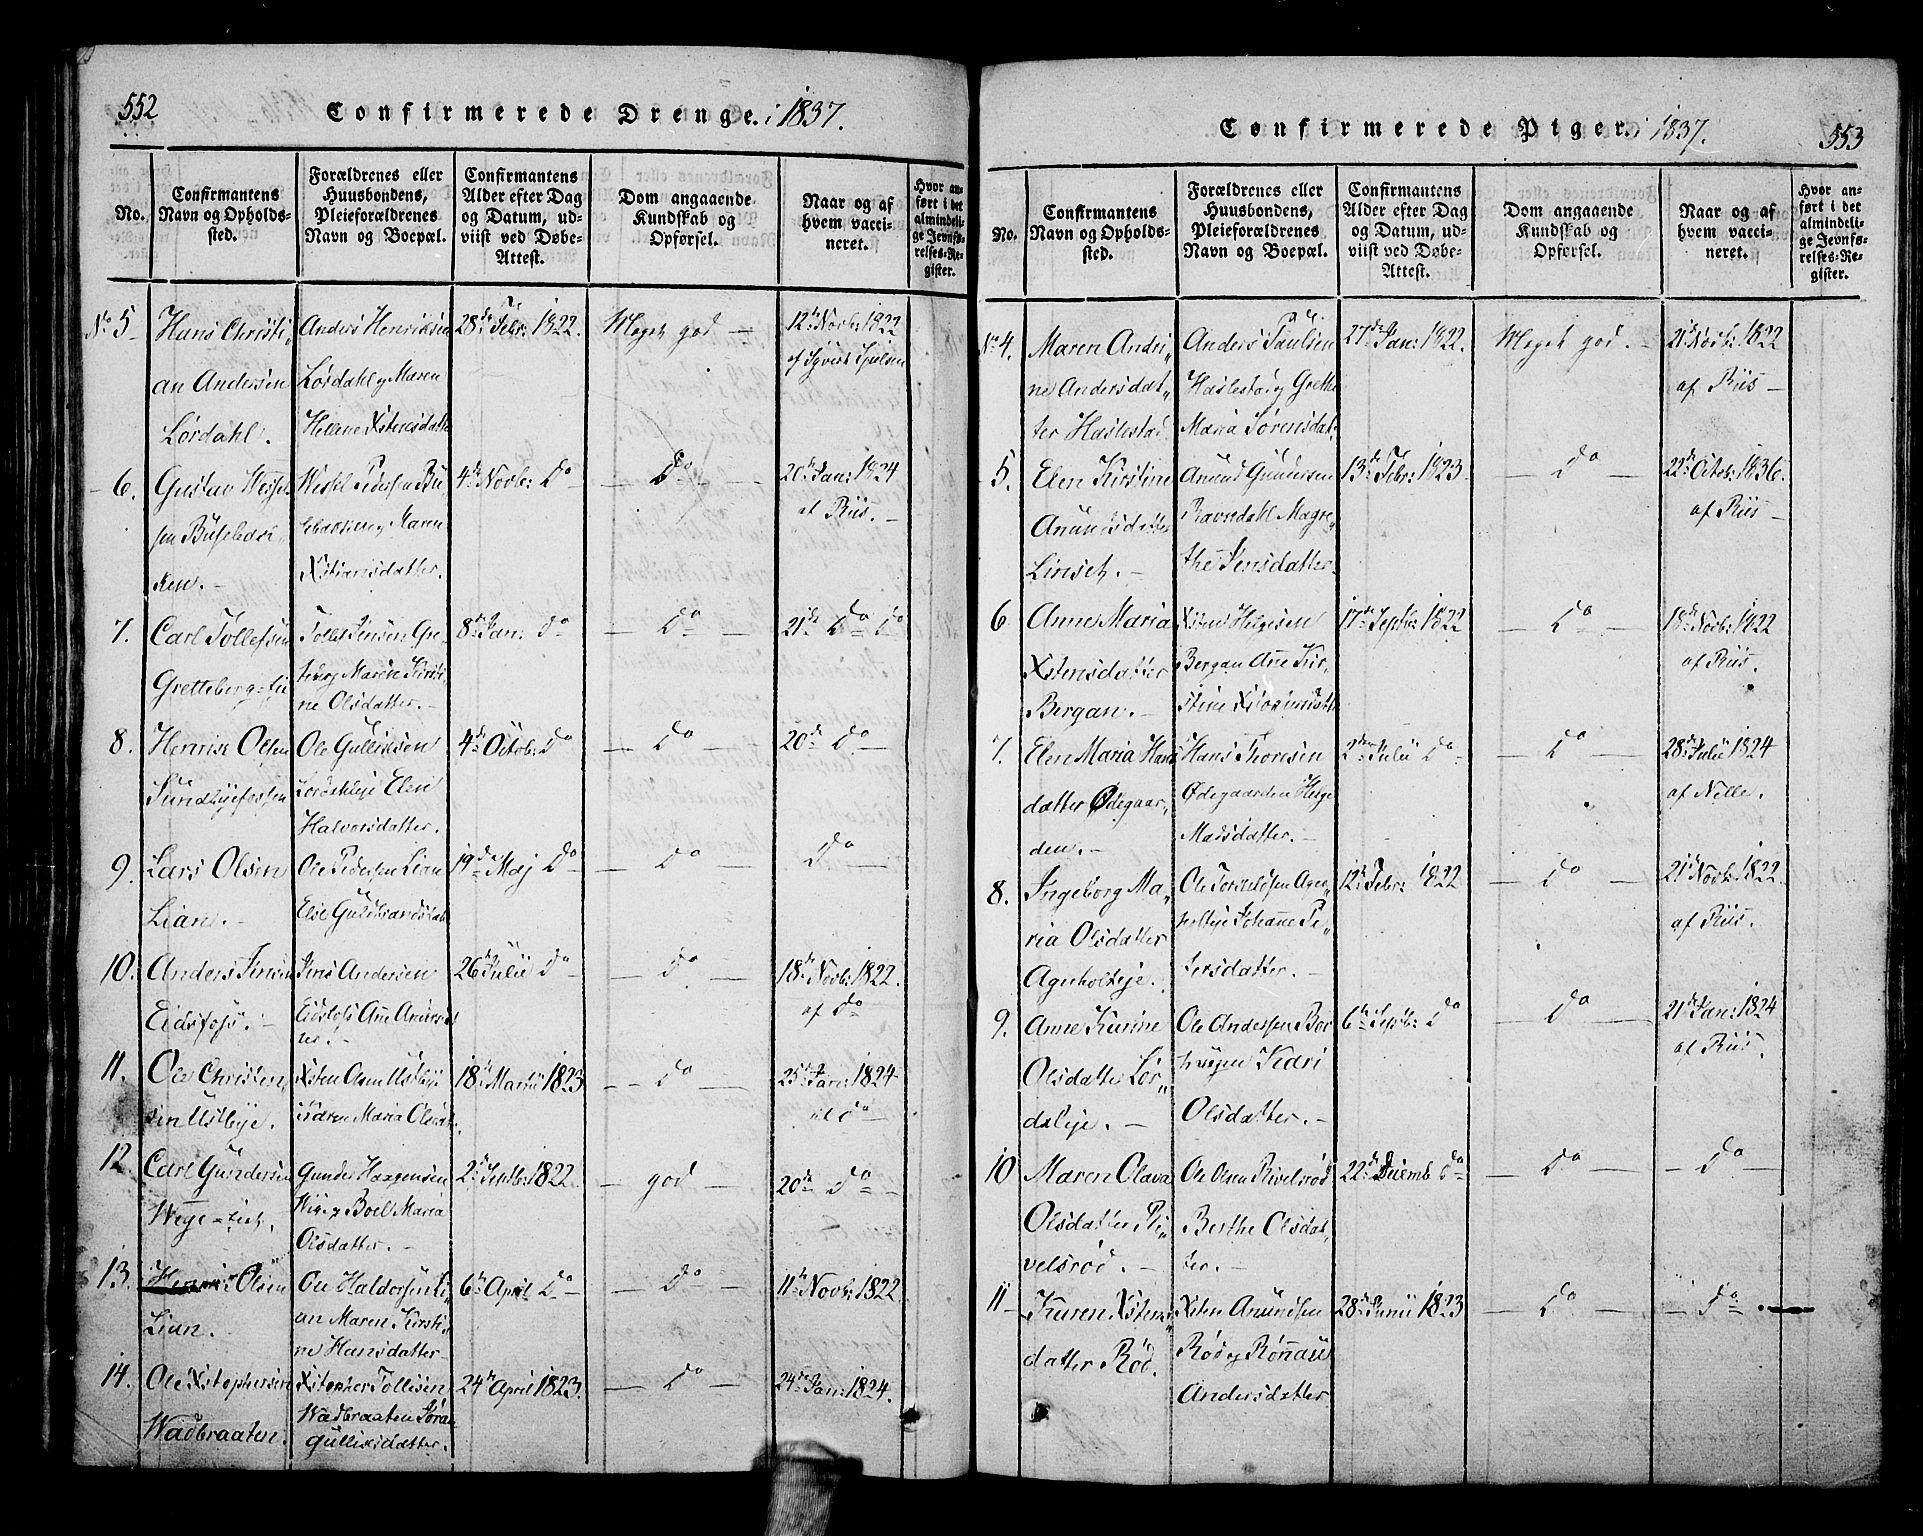 552
Confirmerede Drenge. i 1837.
No.
Confirmantens
Navn og Opholds-
sted.
Forældrenes eller
Huusbondens,
Pleieforældrenes
Navn og Boepæl.
Confirmantens
Alder efter Dag
og Datum, ud-
viist ved Døbe-
Attest.
Dom angaaende
Kundskab og
Opførsel.
Naar og af
hvem vacci-
neret.
Hvor an-
ført i det
almindeli-
ge Jevnfø-
relses-Re-
gister.
No 5
Hans Christi„
an Andersen
Lørdahl.
Anders Henriksen
Lørdahl og Maren
Helene Xstensdatte
28de Febr: 1822.
Meget god —
12te Novb: 1822
6.
Gustav Wessel
sen Busebasi
ken.
Maren
Xstiansdatter.
4de Novb: Do
Do
20de Jan: 1824
af Riis.
7.
Carl Tollefsen
Gretteberg-eie
Tollef Jensen Gre„
Maren Kirsti„
ne Olsdatter.
8de Jan: Do
Do
21de Do Do
8.
Henrik Olsen
Sundbyefossen
Ole Gulliksen
Elen
Halvorsdatter.
4de Octob: Do
Do
20de Do
9.
Lars Olsen
Lian.
Ole Pedersen Lian
Else Guldbrandsdat
19de Maj Do
Do
Do
10.
Anders Jensen
Eidsfoss.
Jens Andersen
Eidsfoss Ane Anders
ter.
26de Julii Do
Do
18de Novb: 1822.
af Do
11.
Ole Christen„
sen Ustbye.
Xsten Olsen Ustbye
Karen Maria Olsdat
18de Martii 1823
Do
25de Jan: 1824
af Do
12.
Carl Gundersen
Wege-eieh.
Gunder Haagensen
Boel Maria
Olsdatter.
2de Septb: 1822.
god
20de Do
13.
Olsen
Lian.
Ole Haldorsen Li„
an Maren Kirsti„
ne Hansdatter
6te April Do
Do
11te Novb: 1822
14.
Ole Xstophersen
Wadbraaten.
Xstopher Tollefsen
Wadbraaten Søran
Gulliksdatter.
24de April 1823.
Do
24de Jan: 1824.
Confirmerede Piger. i 1837.
553
No.
Confirmantens
Navn og Opholds-
sted.
Forældrenes eller
Huusbondens,
Pleieforældrenes
Navn og Boepæl.
Confirmantens
Alder efter Dag
og Datum, ud-
viist ved Døbe-
Attest.
Dom angaaende
Kundskab og
Opførsel.
Naar og af
hvem vacci-
neret.
Hvor an-
ført i det
almindeli-
ge Jevnfø-
relses-Re-
gister.
No 4.
Maren Andri„
ne Andersdat„
ter Haslestad.
Anders Paulsen
Haslestad og Grethe
Maria Sørensdat.
27de Jan: 1822.
Meget god.
21de Novb: 1822
af Riis
5.
Elen Kirstine
Anundsdatter
Linset.
Anund Gundersen
Ravndahl Magre„
the Jensdatter
13de Febr: 1823
Do
22de Octob: 1836.
af Riis
6
Anne Maria
Xstensdatter
Bergan.
Xsten Helgesen
Bergan Ane Kir„
stine
17de Septb: 1822
Do
18de Novb: 1822
af Riis.
7.
Elen Maria Hans
datter Ødegaar„
den.
Hans Thoresen
Ødegaarden Helge
Madsdatter.
2den Julii Do
Do
28de Julii 1824
af Nelle.
8.
Ingeborg Ma„
ria Olsdatter
Agerholteje.
Ole Torkildsen Ager„
holteje Johanne Pe„
tersdatter.
12te Febr: 1822
Do
21de Novb: 1822
af Riis.
9.
Anne Karine
Olsdatter Lør„
daleje.
Ole Andersen
Kari
Olsdatter.
6te Septb: Do
Do
21de Jan: 1824
af Riis.
10
Maren Olava
Olsdatter Ri„
velsrød.
Ole Olsen Rivelsrød
Berthe Olsdat„
ter.
22de Decemb Do
Do
Do
11
Karen Xstens„
datter Rød.
Xsten Anundsen
Rød og Rønnau
Andersdatter
28de Junii 1823
Do
Do